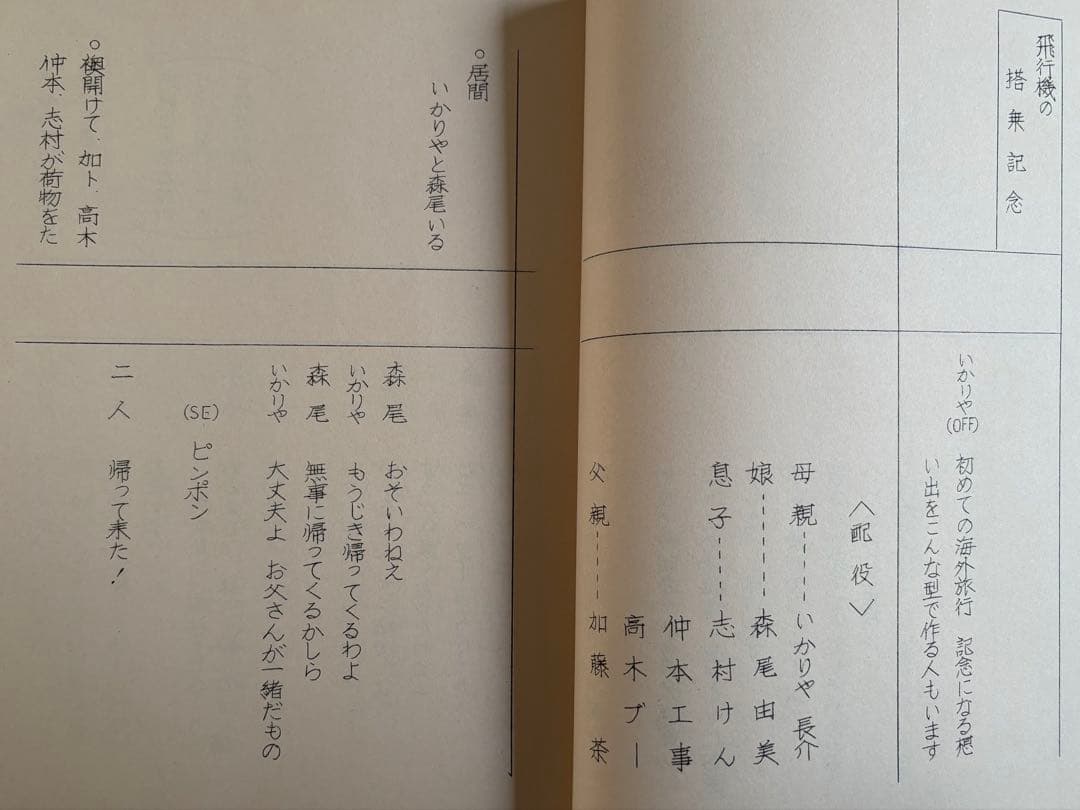 飛行機の
搭乗記念
いかりや(OFF) 初めての海外旅行 記念になる想
い出をこんな型で作る人もいます
〈配役〉
母親------いかりや長介
娘------森尾由美
息子-----志村けん
仲本工事
高木ブー
父親------加藤茶
○居間
いかりやと森尾いる
森尾 おそいわねえ
いかりや もうじき帰ってくるわよ
森尾 無事に帰ってくるかしら
いかりや 大丈夫よ お父さんが一緒だもの
(SE) ピンポン
二人 帰って来た!
○襖開けて、加ト、高木
仲本、志村が荷物をた